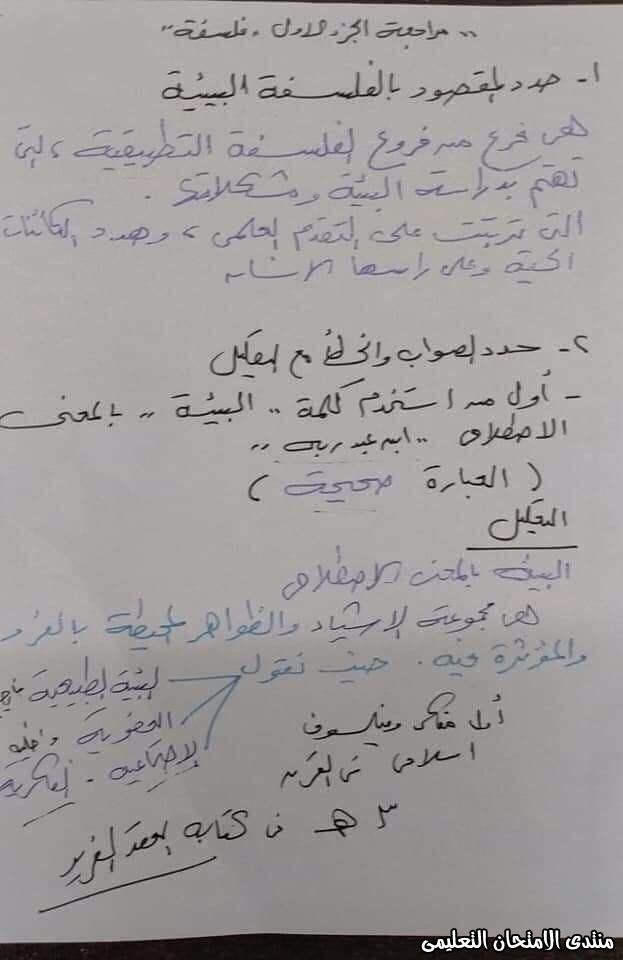 ,, مراجعة الجزء الاول - فلسفة ,,
١- حدد المقصود بالفلسفة البيئية
هى فرع من فروع الفلسفة التطبيقية ، التى
تهتم بدراسة البيئة ومشكلاتها .
التى ترتبت على التقدم العلمى ، وهدد الكائنات
الحية وعلى راسها الانسان
٢- حدد الصواب والخطأ مع التعليل
- أول من استخدم كلمة ,, البيئة ,, بالمعنى
الاصطلاحى ,, ابن عبد ربه ,,
( العبارة صحيحة )
التعليل
البيئة بالمعنى الاصطلاحى
هى مجموعة الاشياء والظواهر المحيطة بالفرد
والمؤثرة فيه . حيث نقول
البيئة الطبيعية
العضوية داخلية
الاجتماعية - الفكرية
أول مفكر وفيلسوف
اسلامى فى القرن
٣ هـ فى كتابه العقد الفريد
منتدى الامتحان التعليمى